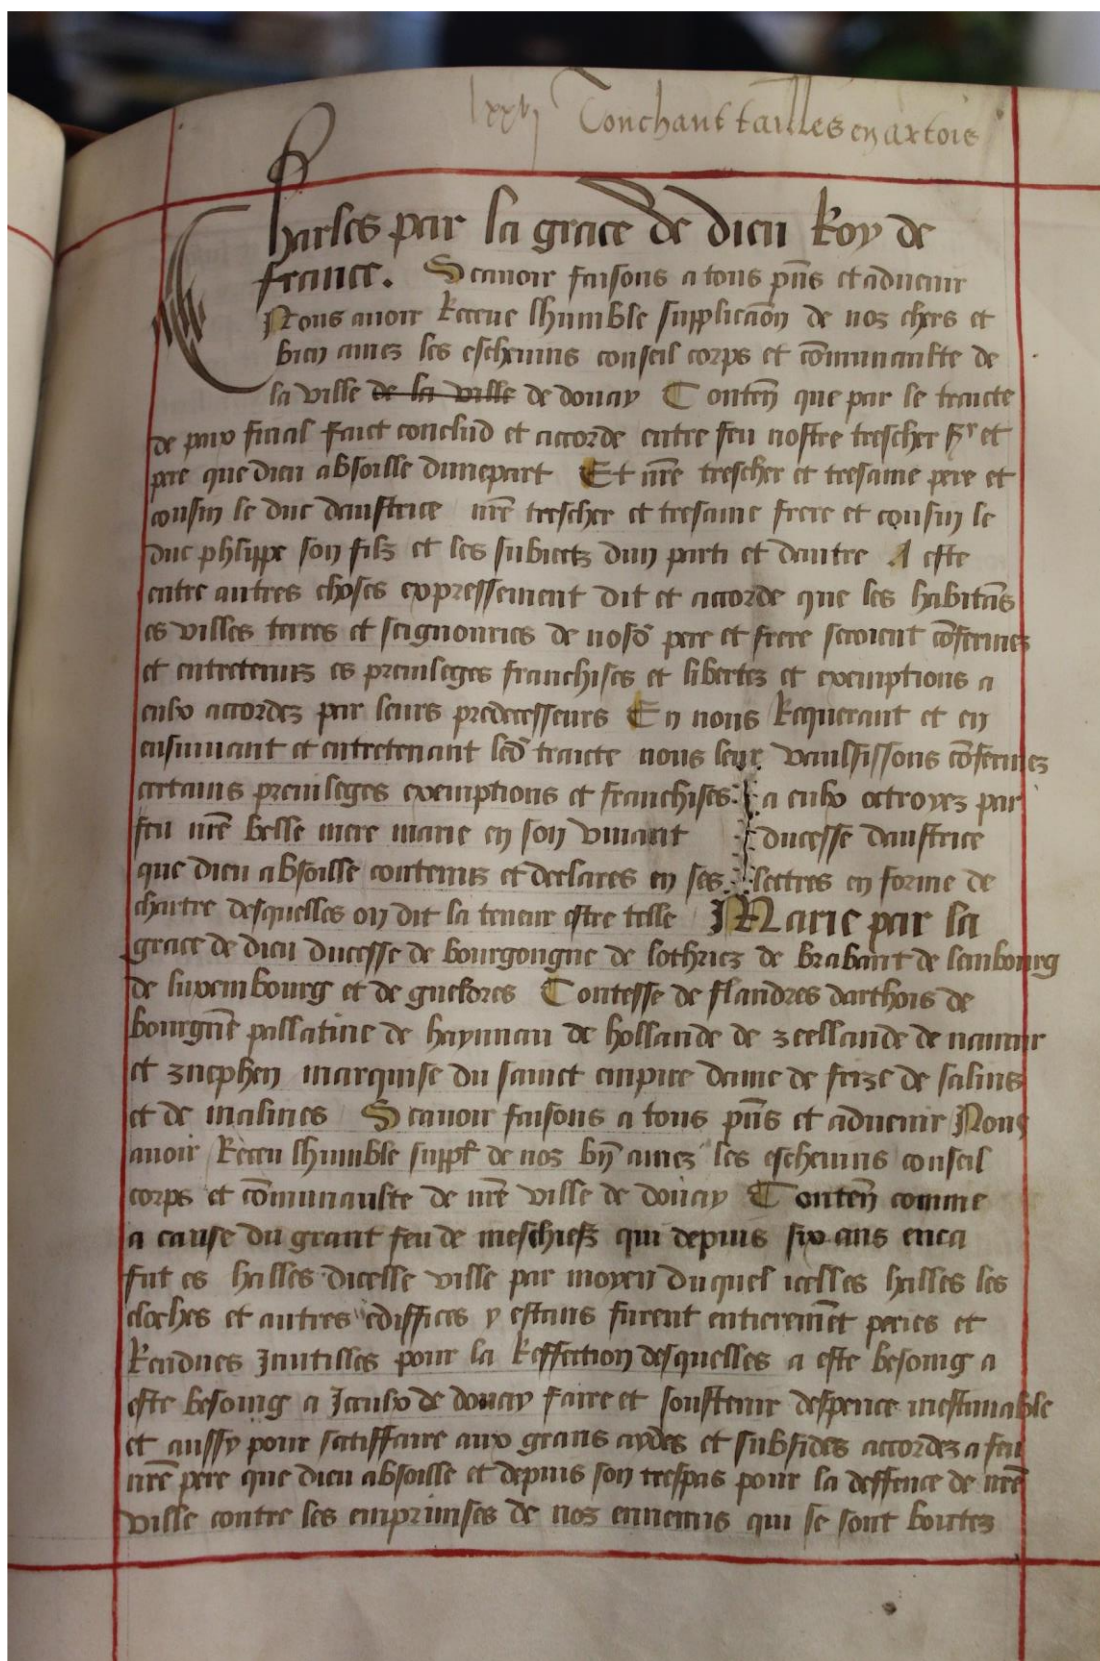 lxxvj Touchant tailles en artois
Charles par la grace de dieu Roy de
france. Scauoir faisons a tous pñs et aduenir
Nous auoir Receue lhumble supplicaõn de noz chers et
bien amez les escheuins conseil corps et cõmunaulte de
la ville de la ville de douay Contenñ que par le traicte
de paix final faict conclud et accorde entre feu nostre trescher sʳ et
pere que dieu absoille dunepart Et nr̃e trescher et tresame pere et
cousin le duc daustrice nr̃e trescher et tresame frere et cousin le
duc phlippe son filz et les subiectz dun parti et dautre A este
entre autres choses expressement dit et accorde que les habitãs
es villes terres et seignouries de nosd̃ pere et frere seroient cõfermez
et entretenuz es preuileges franchises et libertez et exemptions a
eulx accordez par leurs predecesseurs En nous Requerant et en
ensuiuant et entretenant led̃ traicte nous leur vaulsissons cõfermez
certains preuileges exemptions et franchises a eulx octroyez par
feu nr̃e belle mere marie en son viuant ducesse daustrice
que dieu absoille contenuz et declares en ses lettres en forme de
chartre desquelles on dit la teneur estre telle Marie par la
grace de dieu ducesse de bourgongne de lothriez de brabant de lembourg
de luxembourg et de gueldres Contesse de flandres darthois de
bourgñe pallatine de haynnau de hollande de zeellande de namur
et zuephen marquise du sainct empire dame de frize de salins
et de malines Scauoir faisons a tous pñs et aduenir Nous
auoir Receu lhumble supp̃l de noz bñ amez les escheuins conseil
corps et cõmunaulte de nr̃e ville de douay Contenñ comme
a cause du grant feu de meschief qui depuis six ans enca
fut es halles dicelle ville par moyen duquel icelles halles les
cloches et autres ediffices y estans furent entieremẽt peries et
Rendues Inutilles pour la Reffection desquelles a este besoing a
este besoing a Iceulx de douay faire et soustenir despence inestimable
et aussy pour satiffaire aux grans aydes et subsides accordez a feu
nr̃e pere que dieu absoille et depuis son trespas pour la deffence de nr̃e
ville contre les emprinses de noz ennemis qui se sont boutez